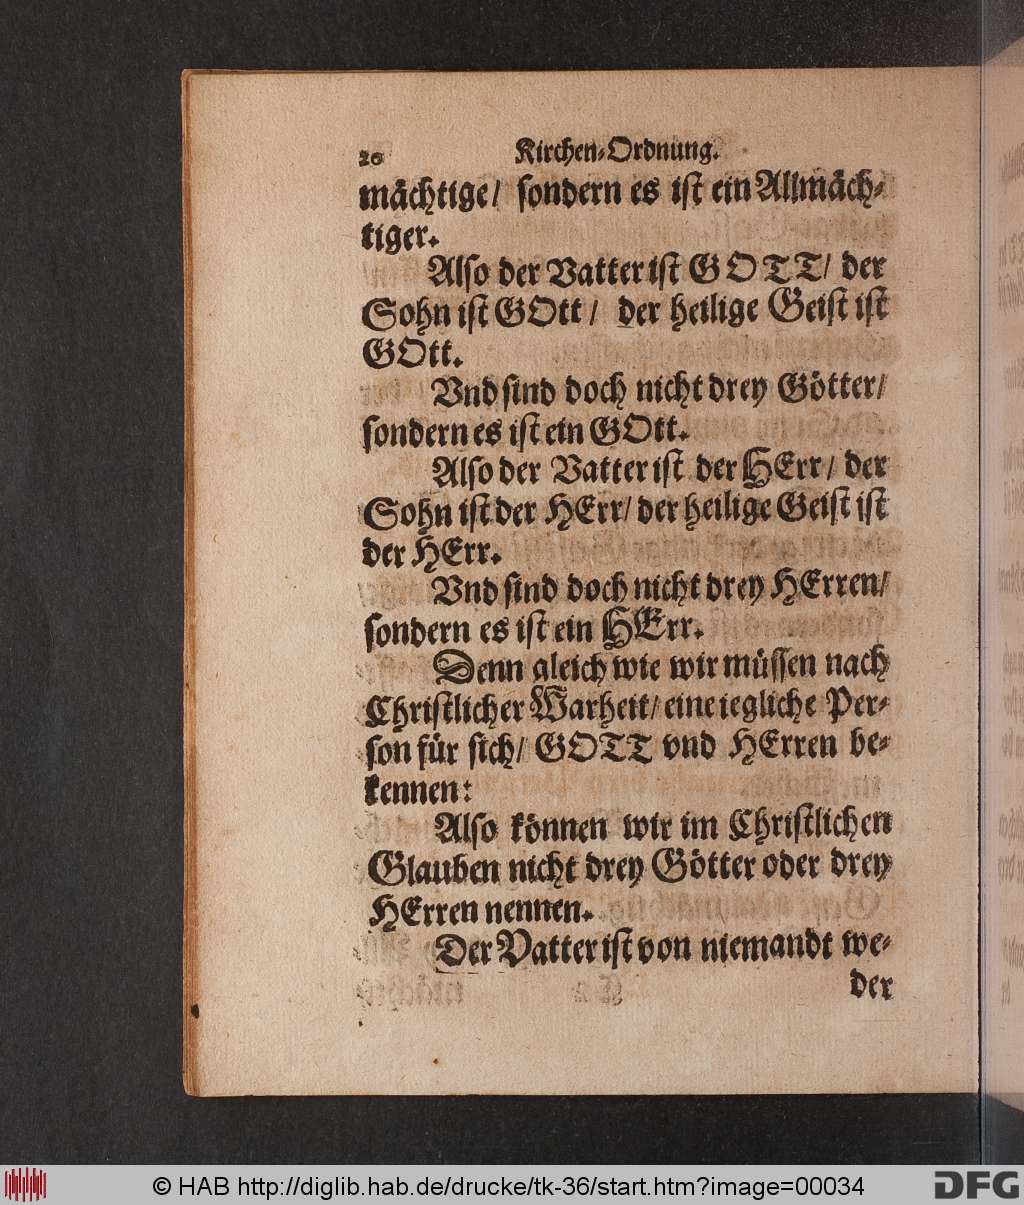 20 Kirchen-Ordnung.
mächtige/ sondern es ist ein Allmäch-
tiger.
Also der Vatter ist GOTT/ der
Sohn ist GOtt/ der heilige Geist ist
GOtt.
Vnd sind doch nicht drey Götter/
sondern es ist ein GOtt.
Also der Vatter ist der HErr/ der
Sohn ist der HErr/ der heilige Geist ist
der HErr.
Vnd sind doch nicht drey HErren/
sondern es ist ein HErr.
Denn gleich wie wir müssen nach
Christlicher Warheit/ eine iegliche Per-
son für sich/ GOTT vnd HErren be-
kennen:
Also können wir im Christlichen
Glauben nicht drey Götter oder drey
HErren nennen.
Der Vatter ist von niemandt we-
der
© HAB http://diglib.hab.de/drucke/tk-36/start.htm?image=00034
DFG